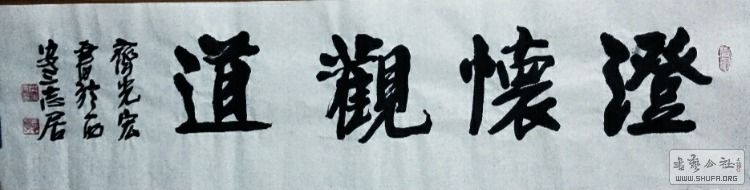 澄懷觀道
齊光宏
書於西
安志居
书艺公社
WWW.SHUFA.ORG